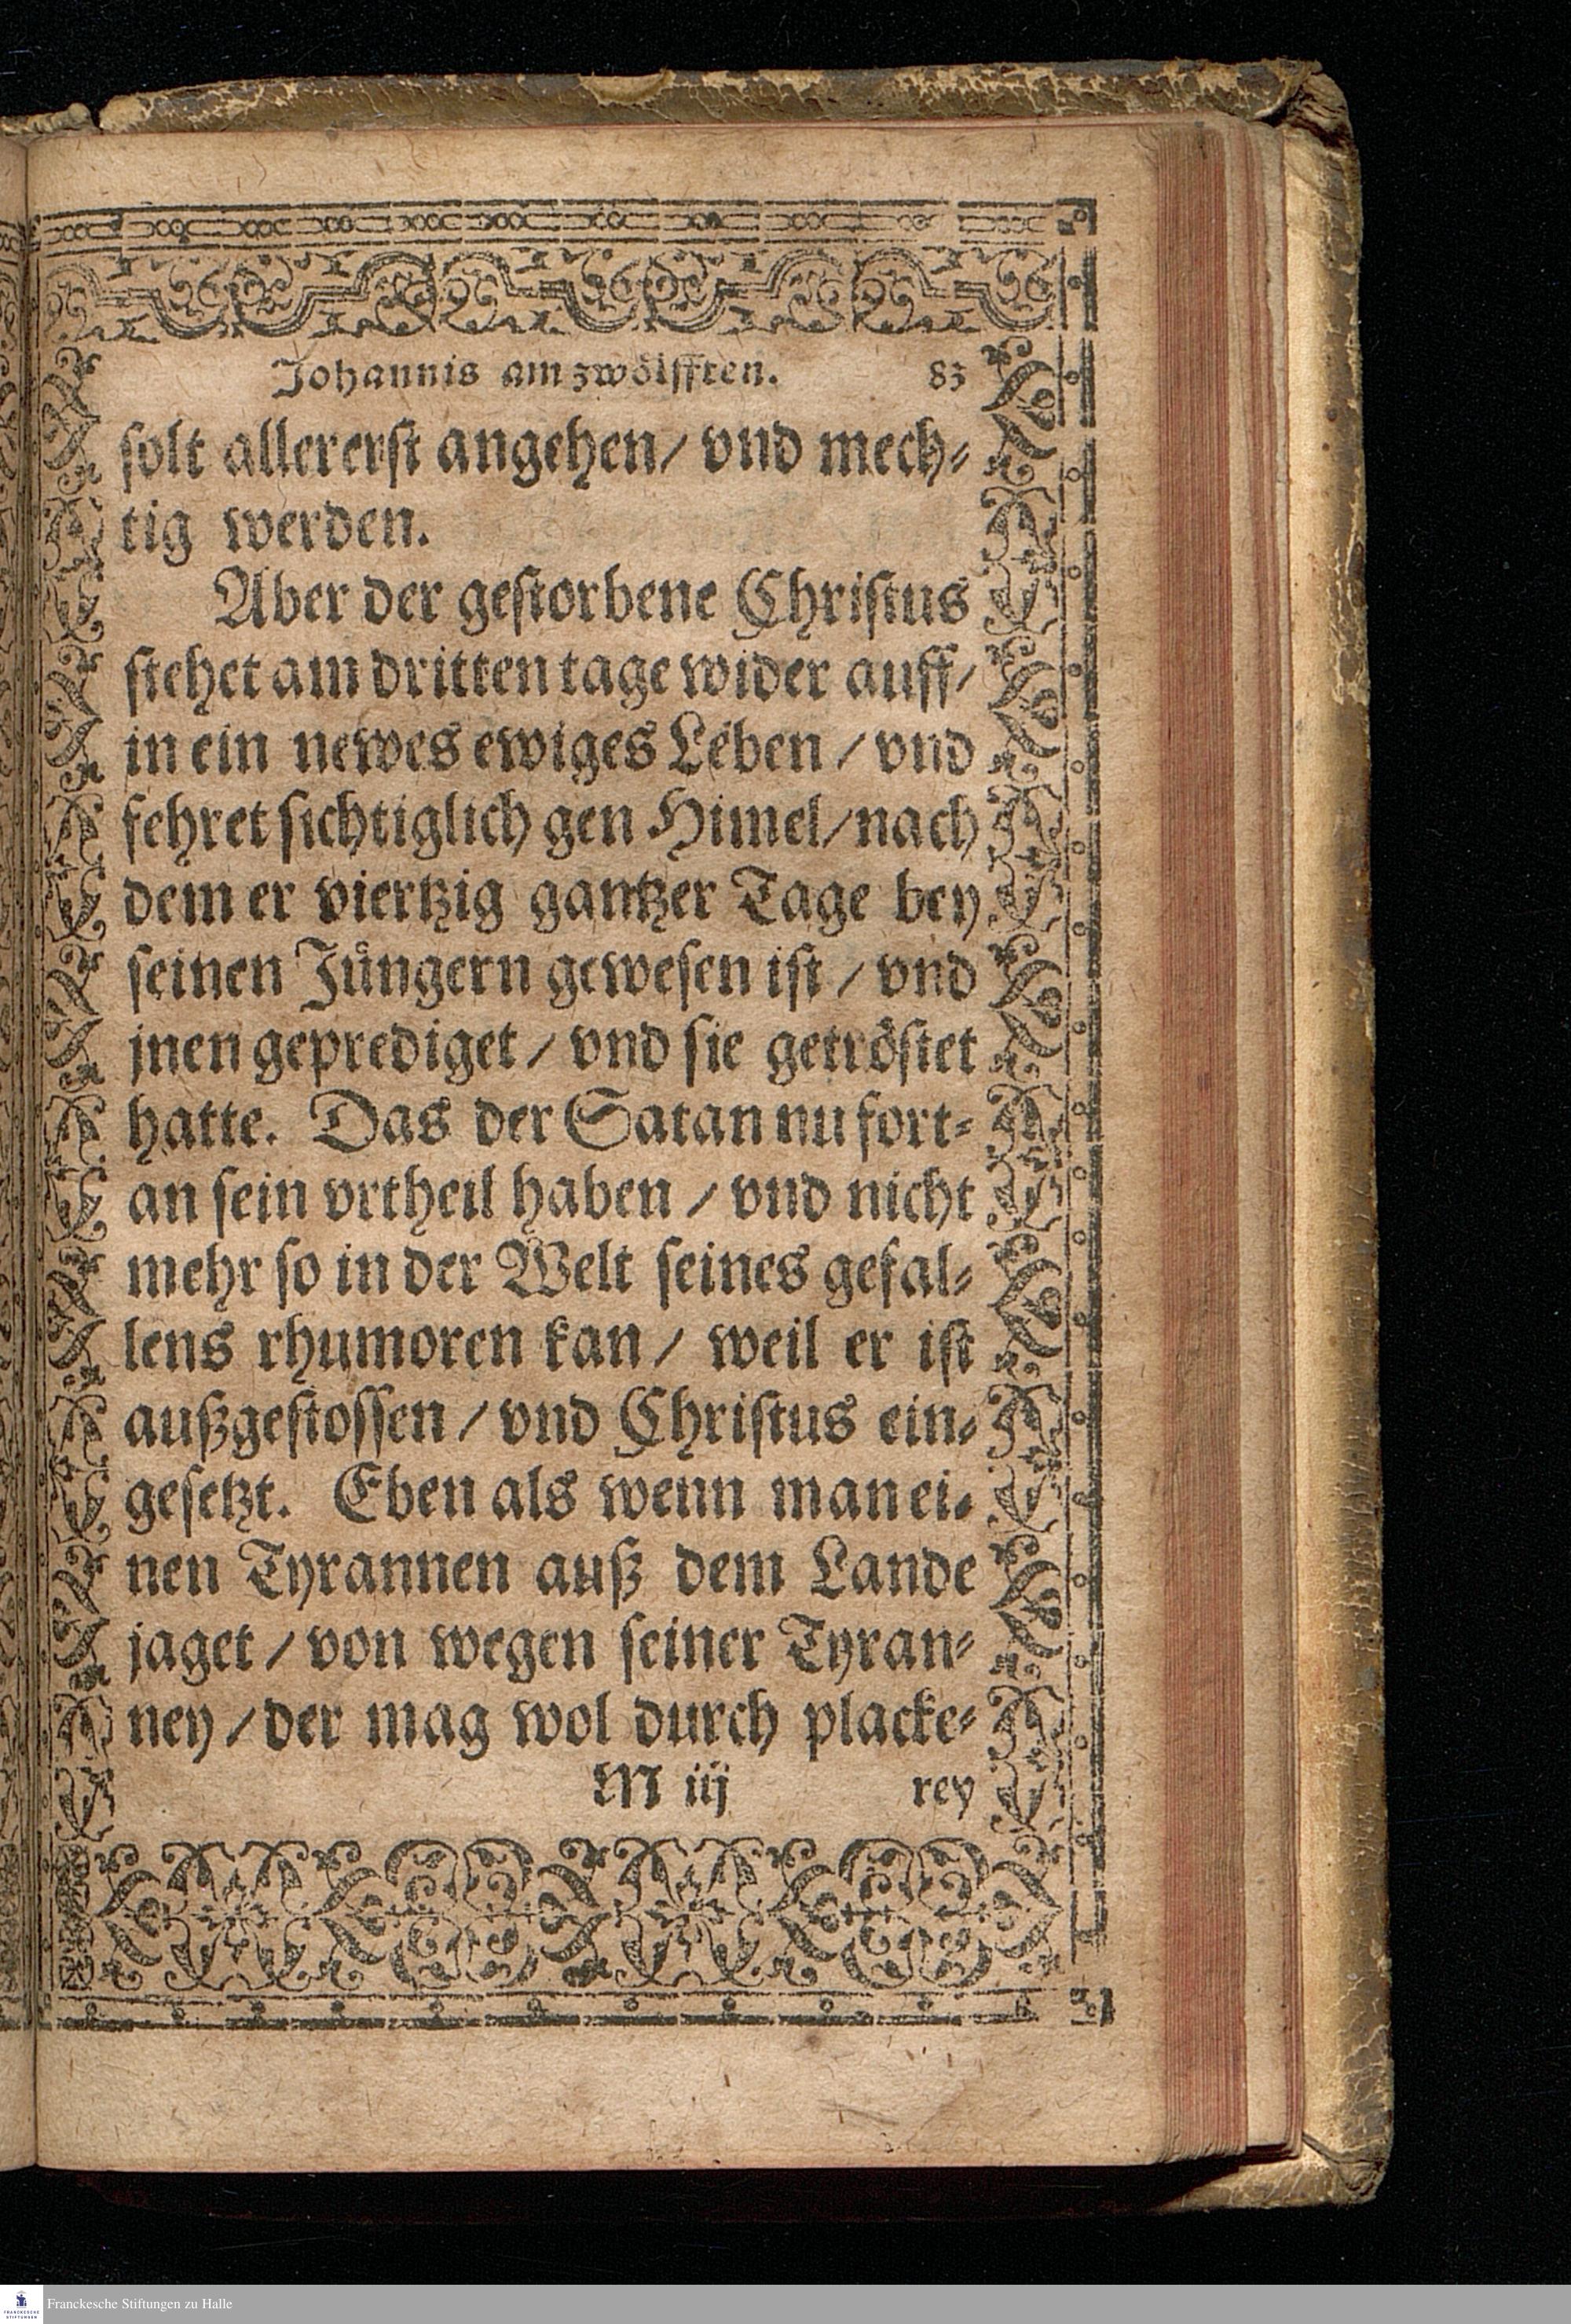 Johannis am zwölfften. 83
solt allererst angehen/ vnd mech⸗
tig werden.
Aber der gestorbene Christus
stehet am dritten tage wider auff/
in ein newes ewiges Leben / vnd
fehret sichtiglich gen Himel/ nach
dem er viertzig gantzer Tage bey
seinen Jüngern gewesen ist / vnd
jnen geprediget / vnd sie getröstet
hatte. Das der Satan nu fort⸗
an sein vrtheil haben / vnd nicht
mehr so in der Welt seines gefal⸗
lens rhumoren kan / weil er ist
außgestossen / vnd Christus ein⸗
gesetzt. Eben als wenn man ei⸗
nen Tyrannen auß dem Lande
jaget / von wegen seiner Tyran⸗
ney / der mag wol durch placke⸗
M iij rey
FRANCKESCHE STIFTUNGEN
Franckesche Stiftungen zu Halle